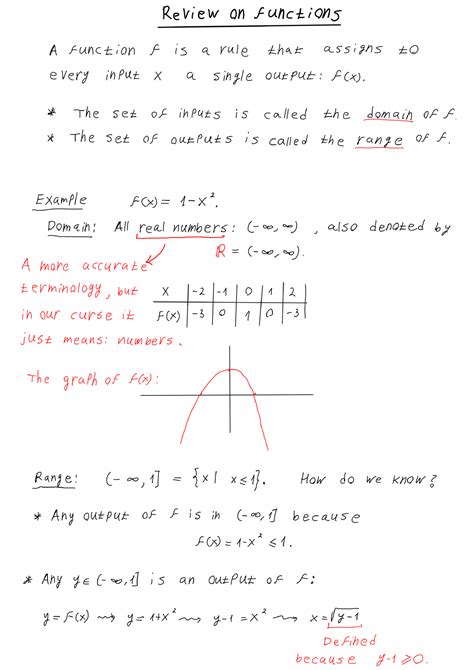 Review on functions
A function f is a rule that assigns to
every input x a single output: f(x).
* The set of inputs is called the domain of f.
* The set of outputs is called the range of f.
Example f(x) = 1-x².
Domain: All real numbers: (-∞,∞), also denoted by
ℝ = (-∞,∞).
A more accurate
terminology, but
in our curse it
just means: numbers.
x | -2 | -1 | 0 | 1 | 2
f(x) | -3 | 0 | 1 | 0 | -3
The graph of f(x):
Range: (-∞,1] = {x| x≤1}. How do we know?
* Any output of f is in (-∞,1] because
f(x) = 1-x² ≤ 1.
* Any y∈(-∞,1] is an output of f:
y = f(x) ⇝ y = 1+x² ⇝ y-1 = x² ⇝ x = √y-1
Defined
because y-1 ≥ 0.